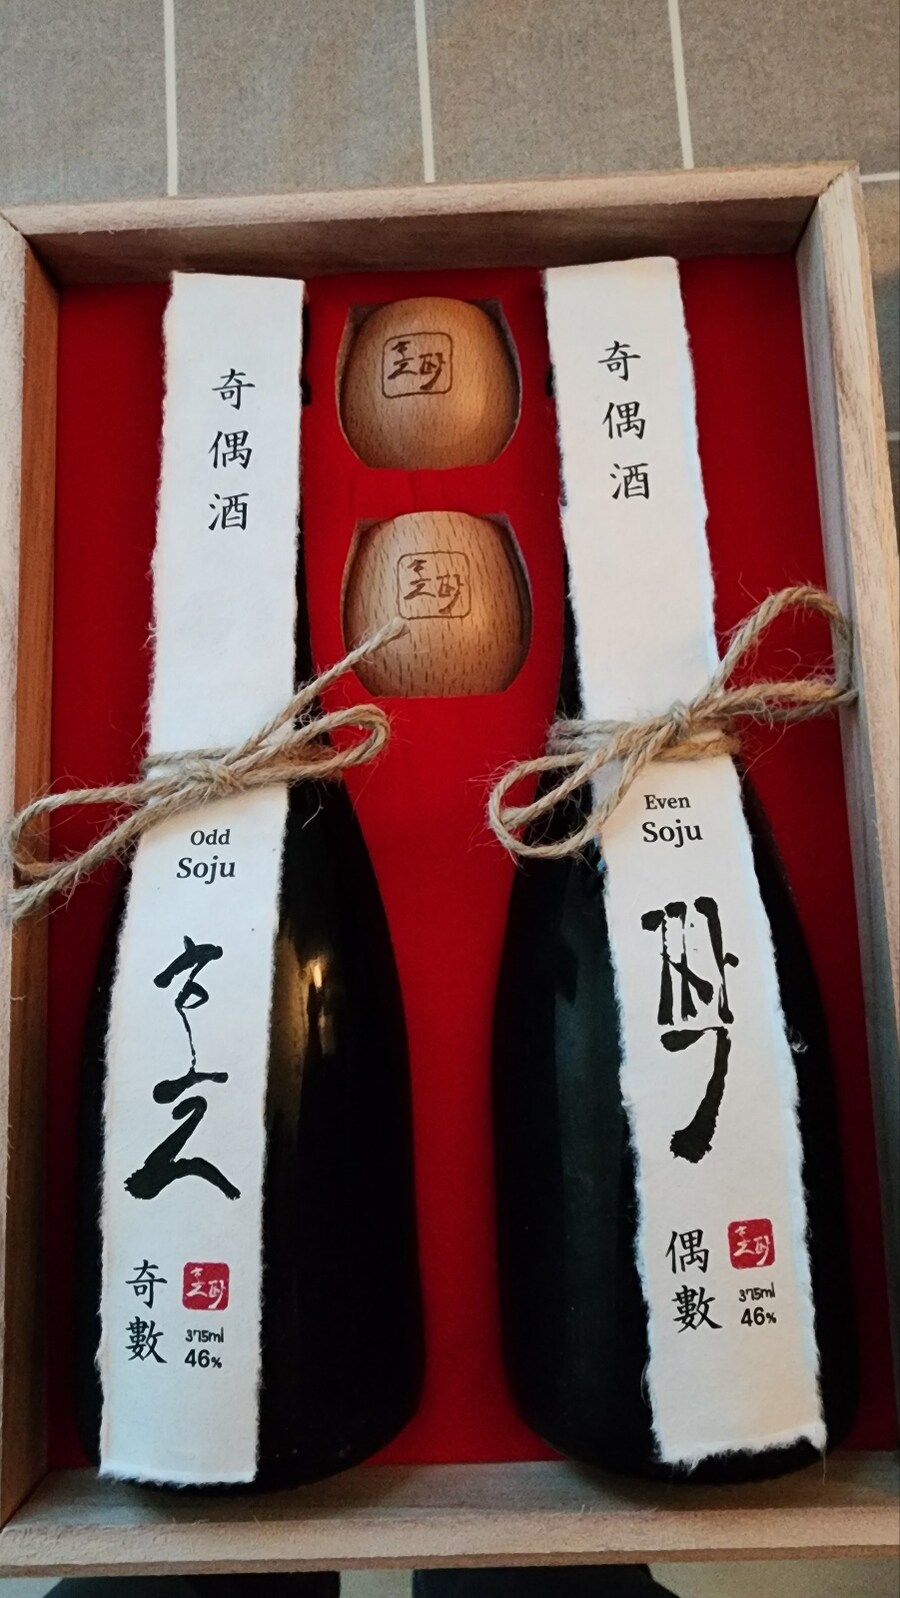 奇偶酒
Odd
Soju
홀
奇數
375ml
46%
奇偶酒
Even
Soju
짝
偶數
375ml
46%